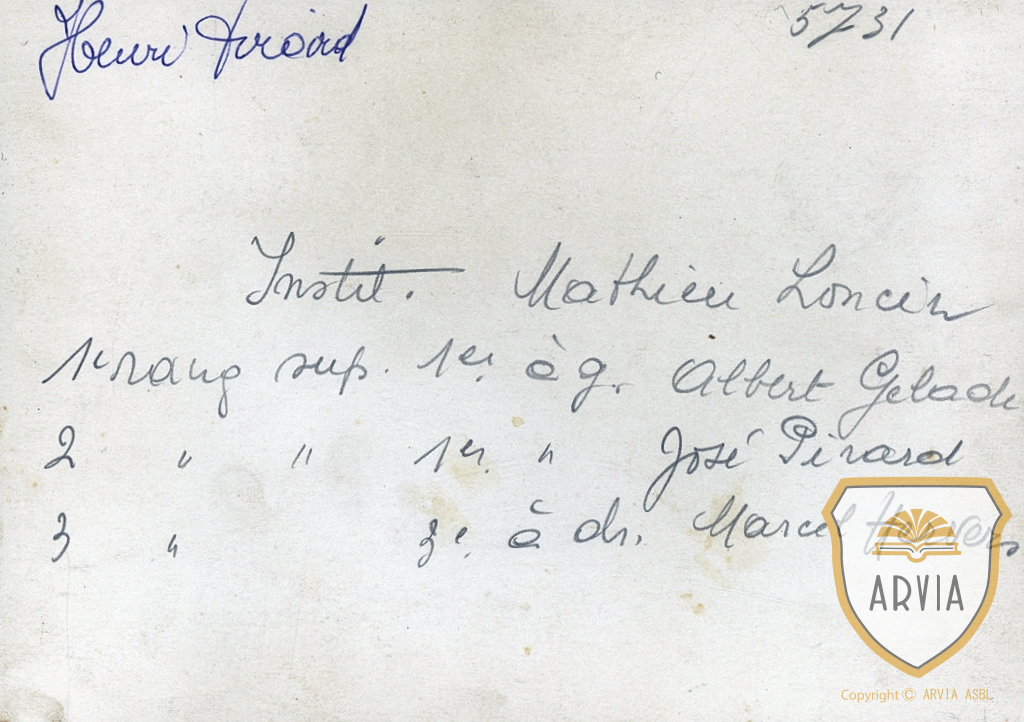 Henri Pirard 5731
Instit. Mathieu Loncin
1e rang sup. 1er. à g. Albert Gelade
2 " " 1er. " José Pirard
3 " 3e. à dr. Marcel
ARVIA
Copyright © ARVIA ASBL